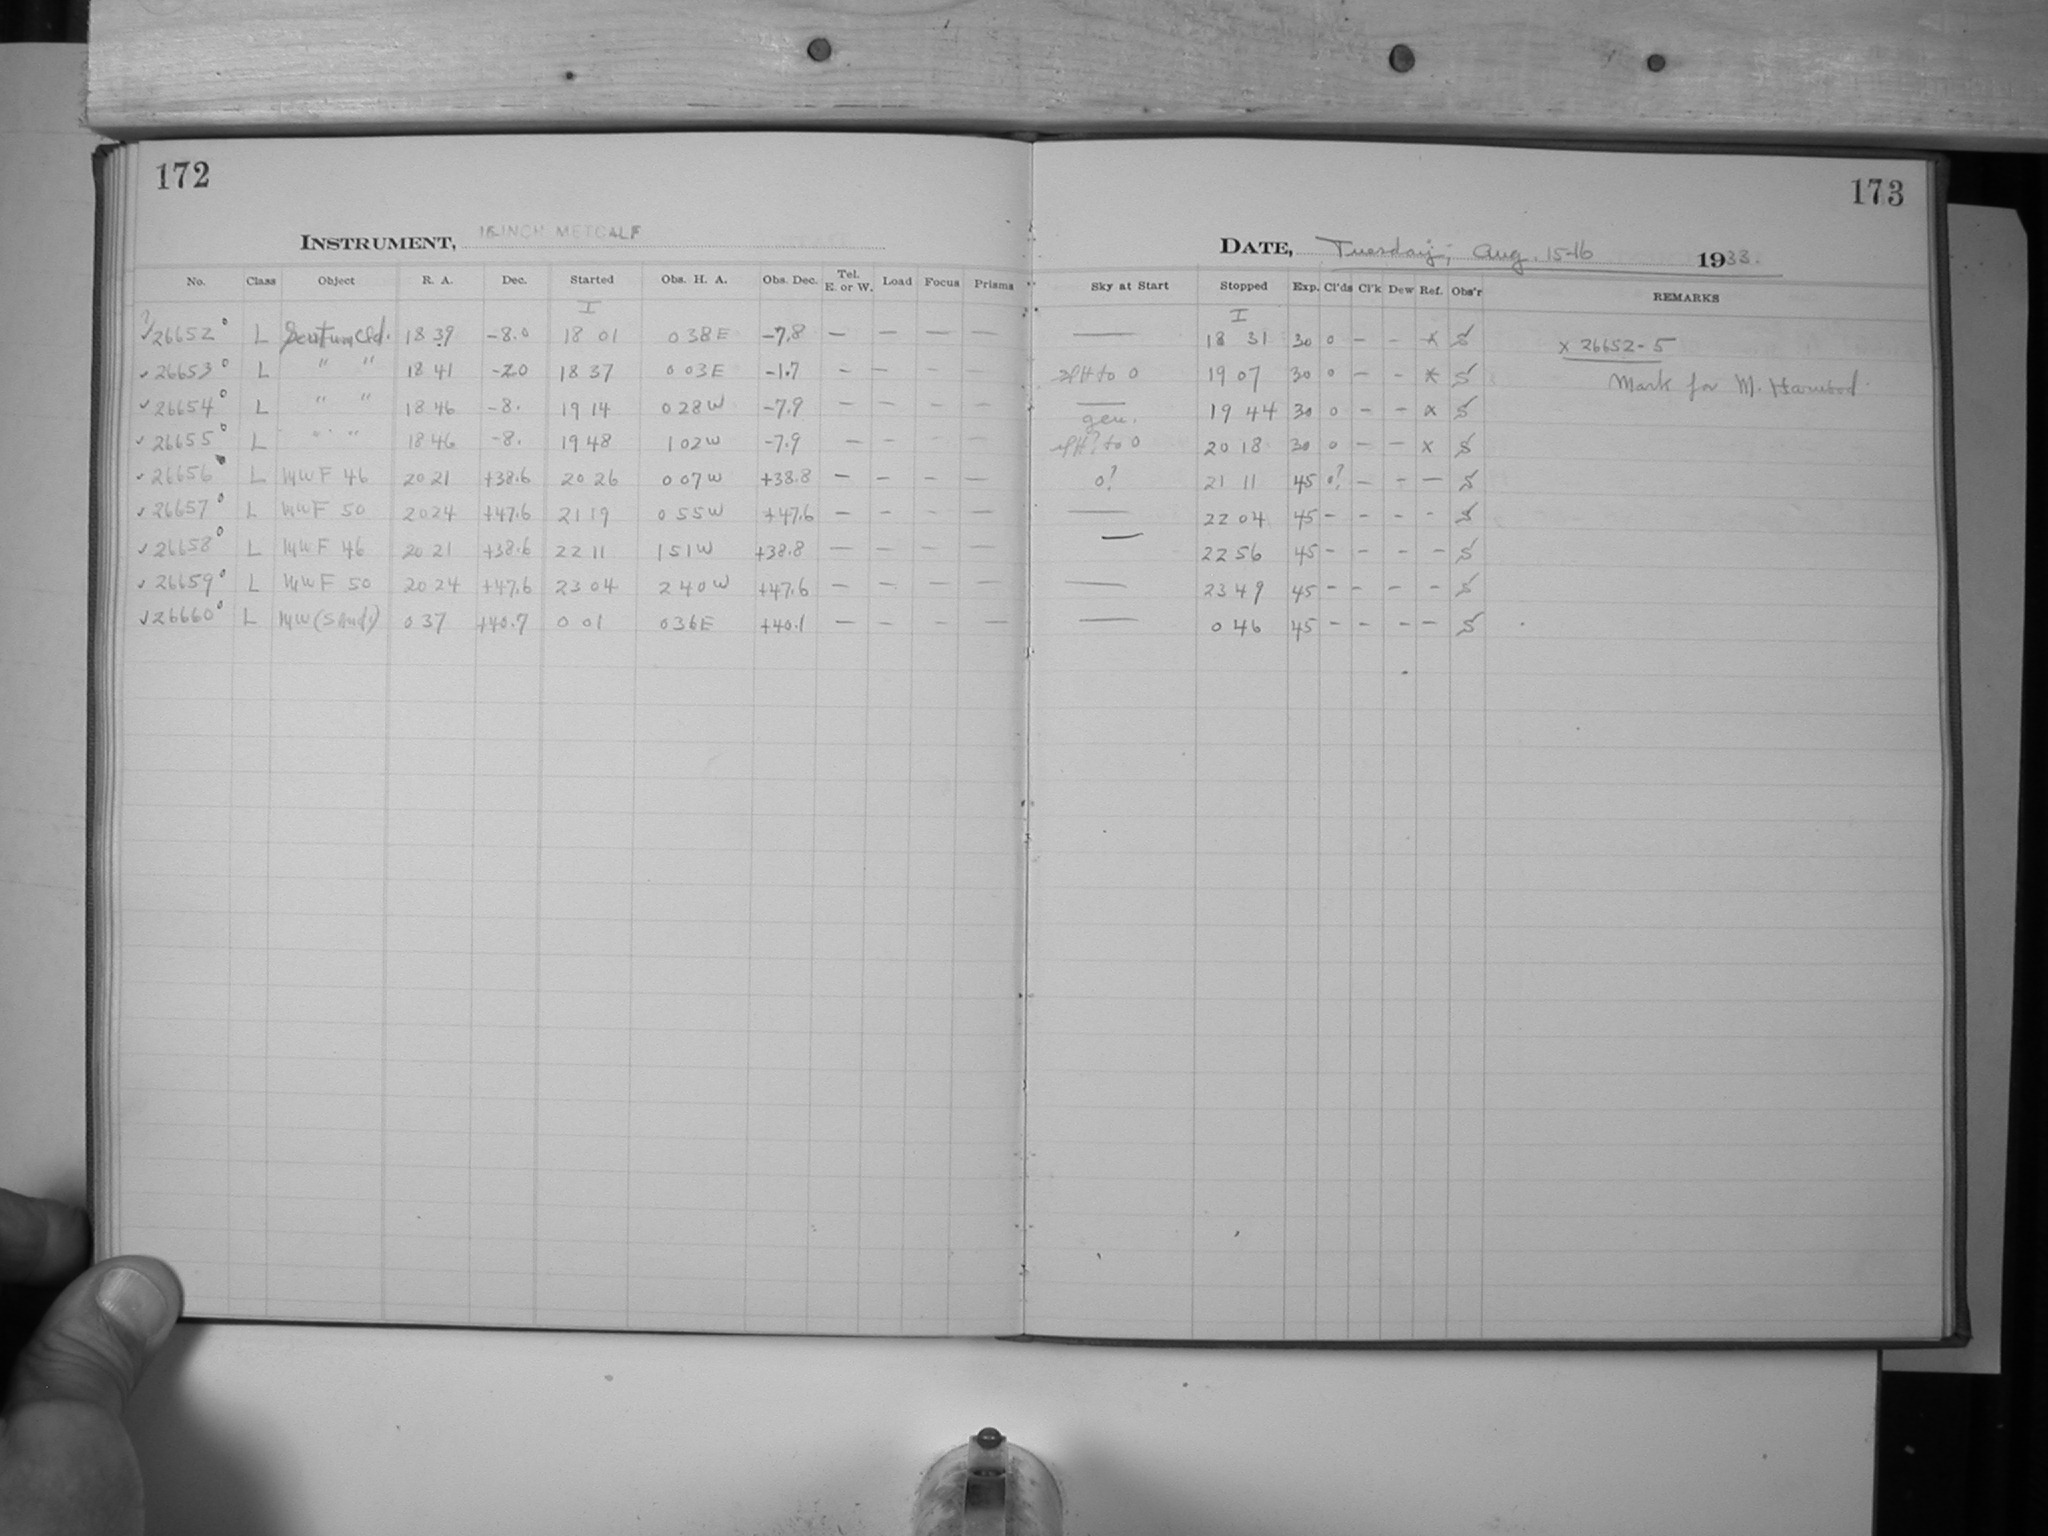 172
INSTRUMENT, 16-INCH METCALF
No. Class Object R. A. Dec. Started Obs. H. A. Obs. Dec. Tel. E. or W. Load Focus Prisms
I
26652 L Scutum Cld. 18 39 -8.0 18 01 0 38 E -7.8 — — — —
26653 L " " 18 41 -2.0 18 37 0 03 E -1.7 — — — —
26654 L " " 18 46 -8. 19 14 0 28 W -7.9 — — — —
26655 L " " 18 46 -8. 19 48 1 02 W -7.9 — — — —
26656 L MWF 46 20 21 +38.6 20 26 0 07 W +38.8 — — — —
26657 L MWF 50 20 24 +47.6 21 19 0 55 W +47.6 — — — —
26658 L MWF 46 20 21 +38.6 22 11 1 51 W +38.8 — — — —
26659 L MWF 50 20 24 +47.6 23 04 2 40 W +47.6 — — — —
26660 L MW (S And) 0 37 +40.7 0 01 0 36 E +40.1 — — — —
173
DATE, Tuesday, Aug. 15-16 1933.
Sky at Start Stopped Exp. Cl'ds Cl'k Dew Ref. Obs'r REMARKS
I
— 18 31 30 0 — — x S x 26652-5
to 0 19 07 30 0 — — x S Mark for M. Harwood.
— gen. 19 44 30 0 — — x S
to 0 20 18 30 0 — — x S
0? 21 11 45 0? — — — S
— 22 04 45 — — — — S
— 22 56 45 — — — — S
— 23 49 45 — — — — S
— 0 46 45 — — — — S